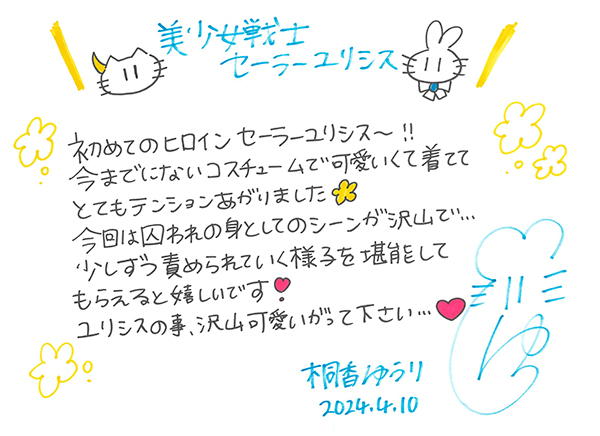 美少女戦士
セーラーユリシス
初めてのヒロイン セーラーユリシス〜!!
今までにないコスチュームで可愛いくて着てて
とてもテンションあがりました
今回は囚われの身としてのシーンが沢山で…
少しずつ責められていく様子を堪能して
もらえると嬉しいです
ユリシスの事、沢山可愛いがって下さい…
桐香ゆうり
2024.4.10